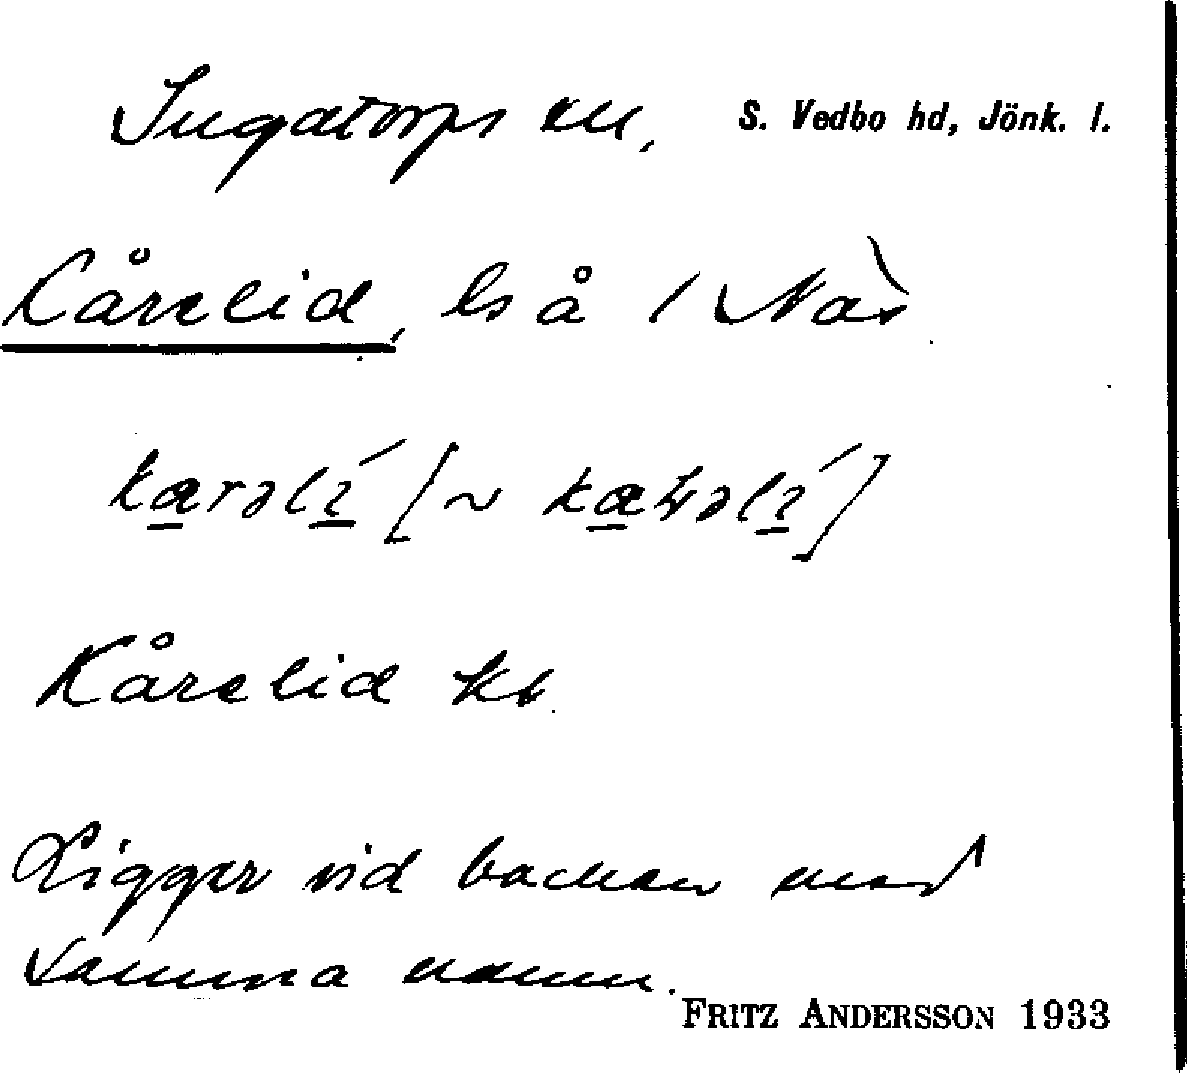 Ingatorps sn, S. Vedbo hd, Jönk. l.
Kårelid, ls å 1 Näs
kærəlí [~ kæ
Kårelid kb.
Ligger vid backen med
samma namn.
FRITZ ANDERSSON 1933